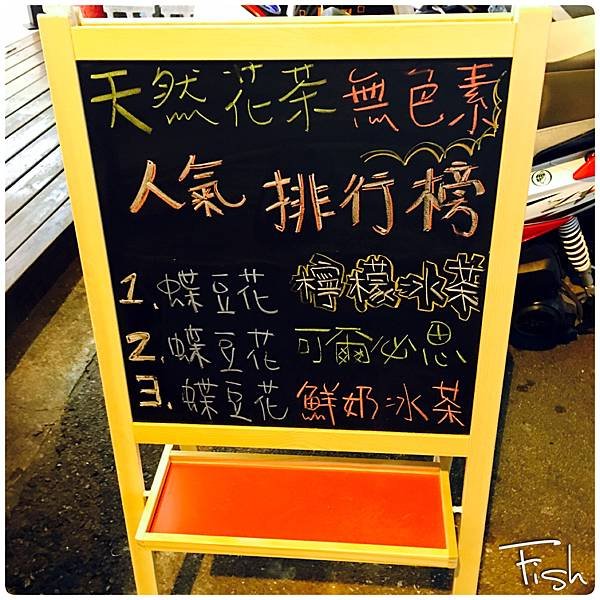 天然花茶無色素
人氣 排行榜
1. 蝶豆花 檸檬冰茶
2. 蝶豆花 可爾必思
3. 蝶豆花 鮮奶冰茶
Fish